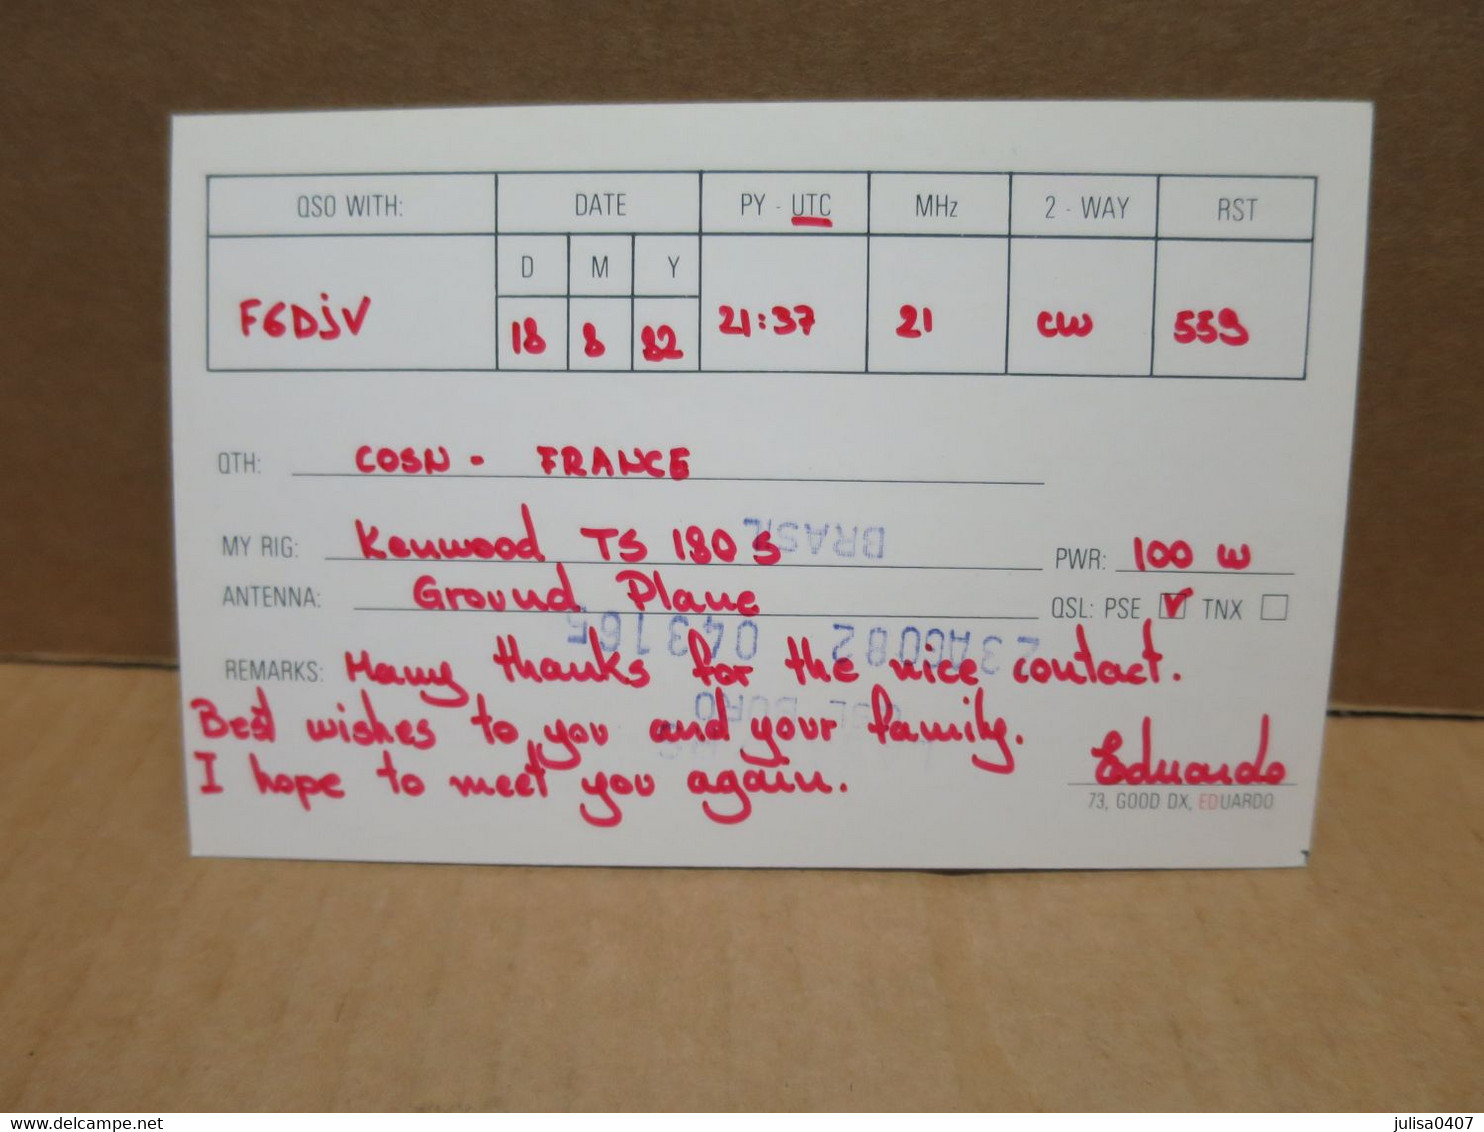 QSO WITH: DATE PY - UTC MHz 2 - WAY RST
D M Y
F6DJV 18 8 82 21:37 21 CW 559
QTH: COSN - FRANCE
MY RIG: Kenwood TS 180 S PWR: 100 W
BRASIL
ANTENNA: Ground Plane QSL: PSE V TNX
23AGO82 043165
REMARKS: Many thanks for the nice contact.
QSL BURO
Best wishes to you and your family.
I hope to meet you again. Eduardo
73, GOOD DX, EDUARDO
delcampe.net
julisa0407